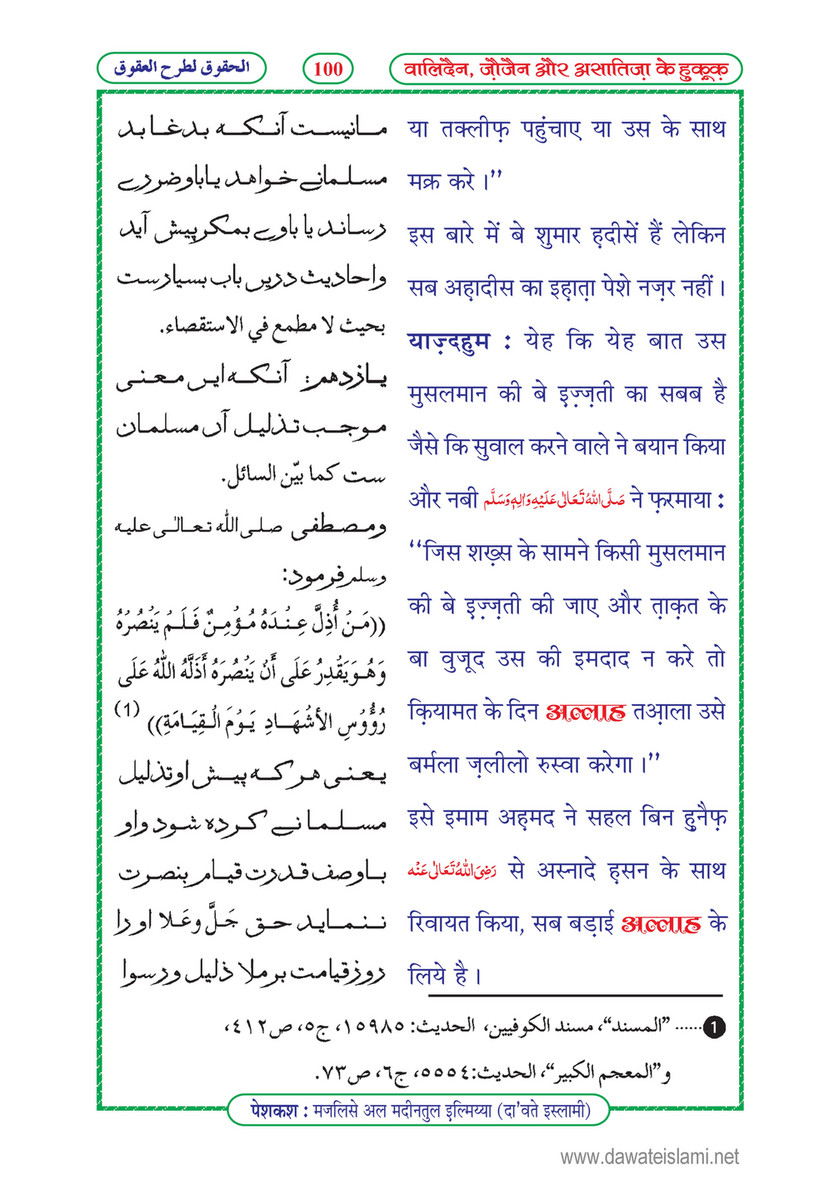 वालिदैन, ज़ौजैन और असातिज़ा के हुक़ूक़
100
الحقوق لطرح العقوق
या तक्लीफ़ पहुंचाए या उस के साथ
मक्र करे ।’’
इस बारे में बे शुमार ह़दीसें हैं लेकिन
सब अह़ादीस का इह़ात़ा पेशे नज़र नहीं ।
याज़्दहुम : येह कि येह बात उस
मुसलमान की बे इ़ज़्ज़ती का सबब है
जैसे कि सुवाल करने वाले ने बयान किया
और नबी صَلَّى اللهُ تَعَالٰى عَلَيْهِ وَاٰلِهٖ وَسَلَّم ने फ़रमाया :
‘‘जिस शख़्स के सामने किसी मुसलमान
की बे इ़ज़्ज़ती की जाए और त़ाक़त के
बा वुजूद उस की इमदाद न करे तो
क़ियामत के दिन अल्लाह तआ़ला उसे
बर्मला ज़लीलो रुस्वा करेगा ।’’
इसे इमाम अह़मद ने सहल बिन ह़ुनैफ़
رَضِىَ اللهُ تَعَالٰى عَنْه से अस्नादे ह़सन के साथ
रिवायत किया, सब बड़ाई अल्लाह के
लिये है ।
مانیست آنکه بدغا بد
مسلمانے خواهد یا باو ضررے
رساند یا باوے بمکر پیش آید
واحادیث دریں باب بسیارست
بحیث لا مطمع في الاستقصاء.
یازدهم: آنکه ایں معنی
موجب تذلیل آں مسلمان
ست کما بيّن السائل.
ومصطفی صلی الله تعالٰی علیه
وسلم فرمود:
((مَنْ أُذِلَّ عِنْدَهُ مُؤْمِنٌ فَلَمْ يَنْصُرْهُ
وَهُوَ يَقْدِرُ عَلَى أَنْ يَنْصُرَهُ أَذَلَّهُ اللهُ عَلَى
رُؤُوْسِ الأَشْهَادِ يَوْمَ الْقِيَامَةِ)) (1)
یعنی هر که پیش او تذلیل
مسلمانے کرده شود واو
باوصف قدرت قیام بنصرت
ننماید حق جَلَّ وعَلا اورا
روز قیامت برملا ذلیل ورسوا
1 ...... ”المسند“، مسند الكوفيين، الحديث: ١٥٩٨٥، ج٥، ص٤١٢،
و”المعجم الكبير“، الحديث:٥٥٥٤، ج٦، ص٧٣.
पेशकश : मजलिसे अल मदीनतुल इ़ल्मिय्या (दा'वते इस्लामी)
www.dawateislami.net